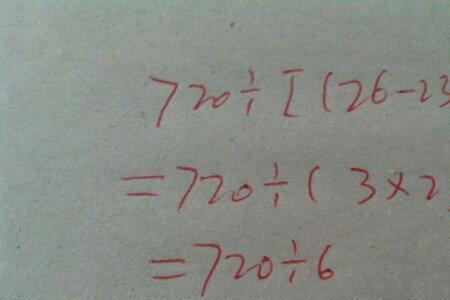 720÷[(26-23
=720÷(3×2
=720÷6